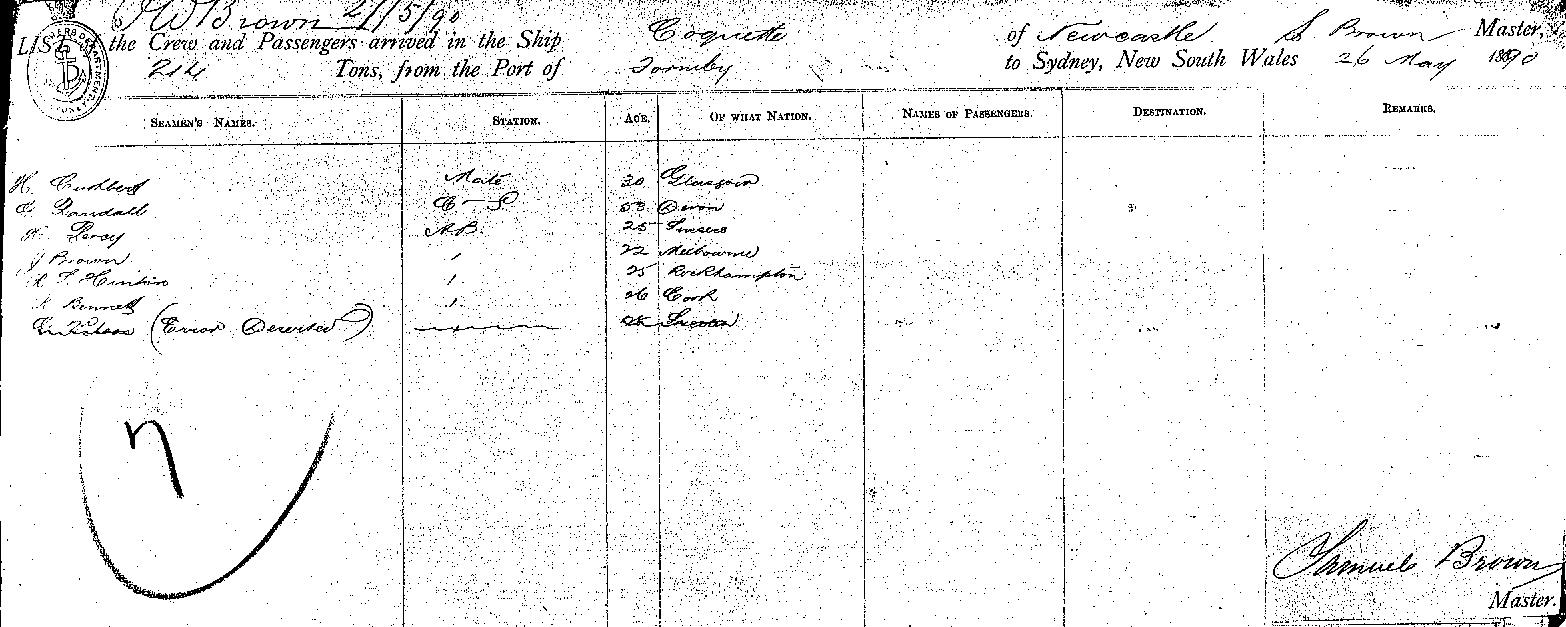 H W Brown 2/5/90
LIST the Crew and Passengers arrived in the Ship Coquette of Newcastle S Brown Master,
214 Tons, from the Port of to Sydney, New South Wales 26 May 1890
SEAMEN'S NAMES. STATION. AGE. OF WHAT NATION. NAMES OF PASSENGERS. DESTINATION. REMARKS.
H. Cuthbert Mate 30 Glasgow
Randall C - S 53 Devon
Percy A.B. 25
J Brown " 22 Melbourne
F Hinton " 25 Rockhampton
Bennett " 26 Cork
(Error Deserted)
n
Samuel Brown
Master.